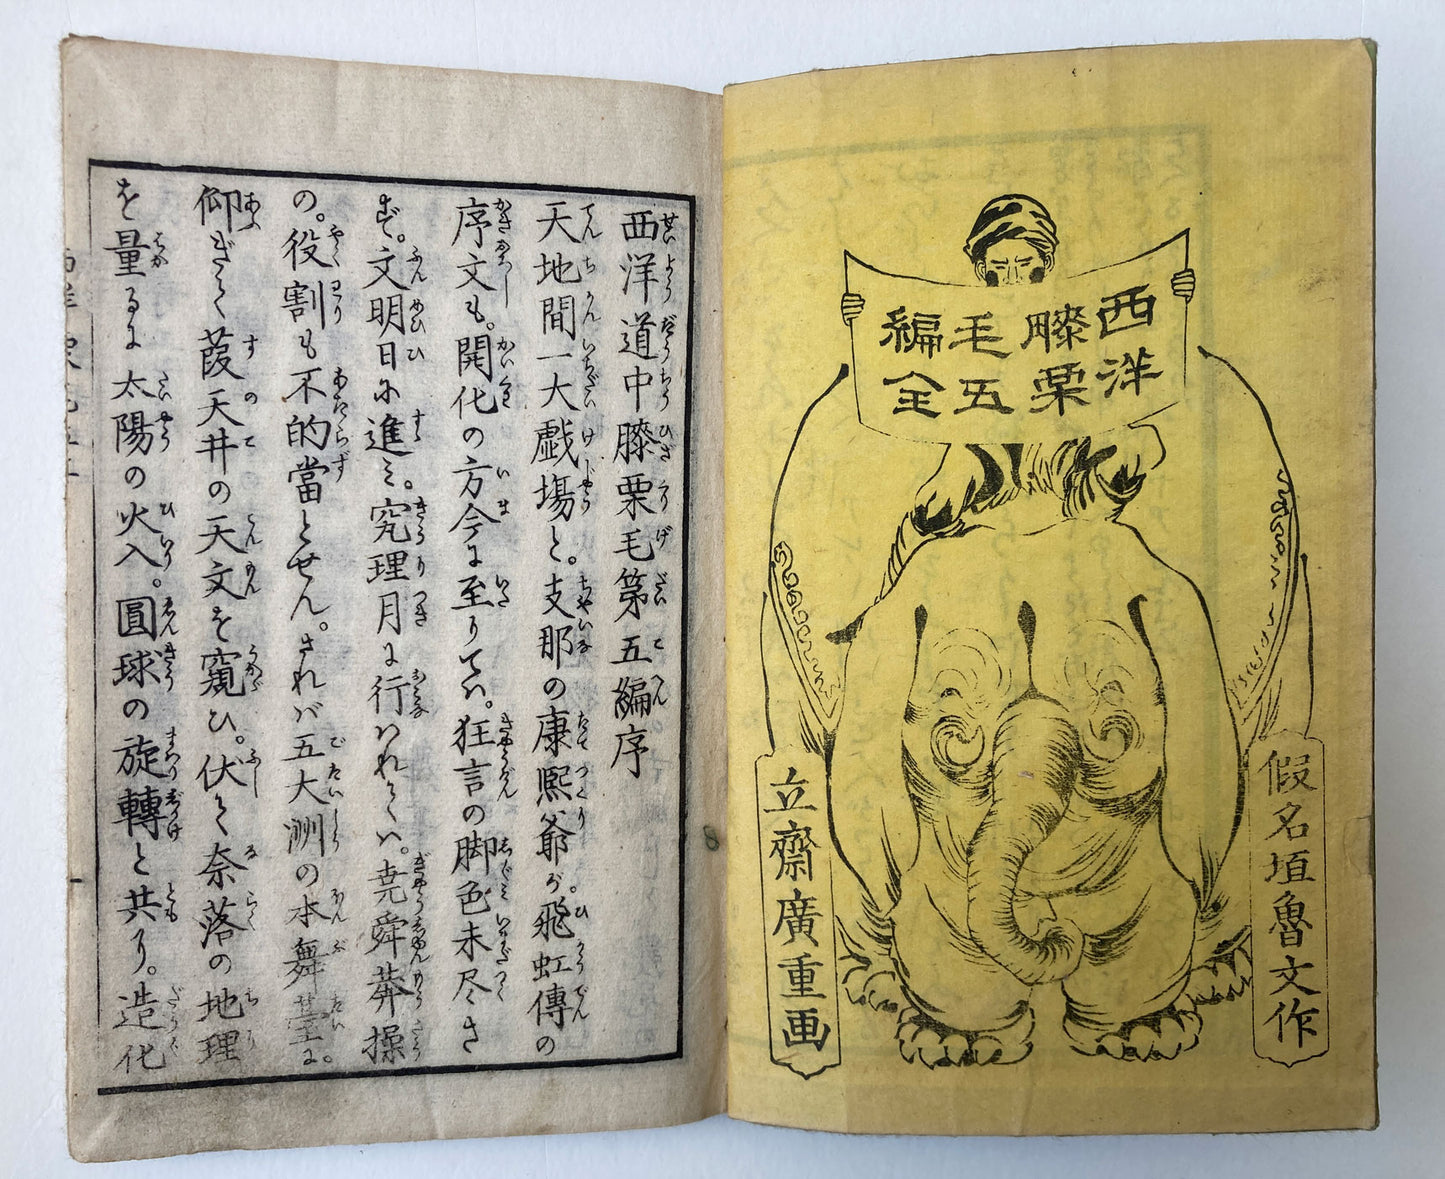 西洋
膝栗
毛五
編全
假名垣魯文作
立齋廣重画
西洋道中膝栗毛第五編序
天地間一大戯塲と。支那の康熈爺が飛虹傳の
序文も。開化の方今に至りてハ。狂言の脚色未尽さ
ず。文明日に進ミ。究理月に行ハれてハ。堯舜莽操
の。役割も不的當とせん。されバ五大洲の本舞臺に。
仰ぎて葭天井の天文を窺ひ。伏て奈落の地理
を量るに太陽の火入。圓球の旋轉と共り。造化